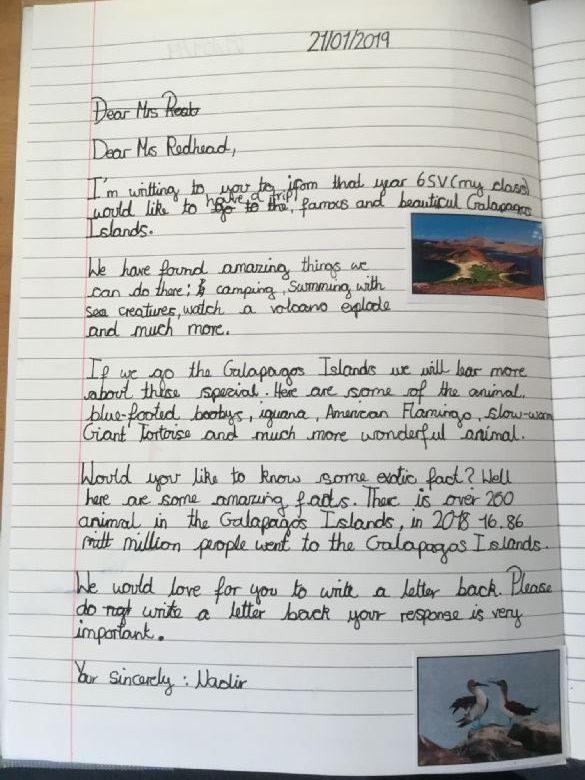 21/01/2019
Dear Mrs Reab
Dear Ms Redhead,
I'm writting to you to ifom that year 6SV (my class)
would like to have a trip go to the, famous and beautiful Galapagos
Islands.
We have found amazing things we
can do there; camping, swmming with
sea creatures, watch a volcano explode
and much more.
If we go the Galapagos Islands we will lear more
about these spezial. Here are some of the animal,
blue-footed boobys, iguana, American Flamingo, slow-worm
Giant Tortoise and much more wonderful animal.
Would you like to know some exotic fact? Well
here are some amazing facts. There is over 200
animal in the Galapagos Islands, in 2018 16.86
million people went to the Galapagos Islands.
We would love for you to write a letter back. Please
do not write a letter back your response is very
important.
Your sincerely : Nadir